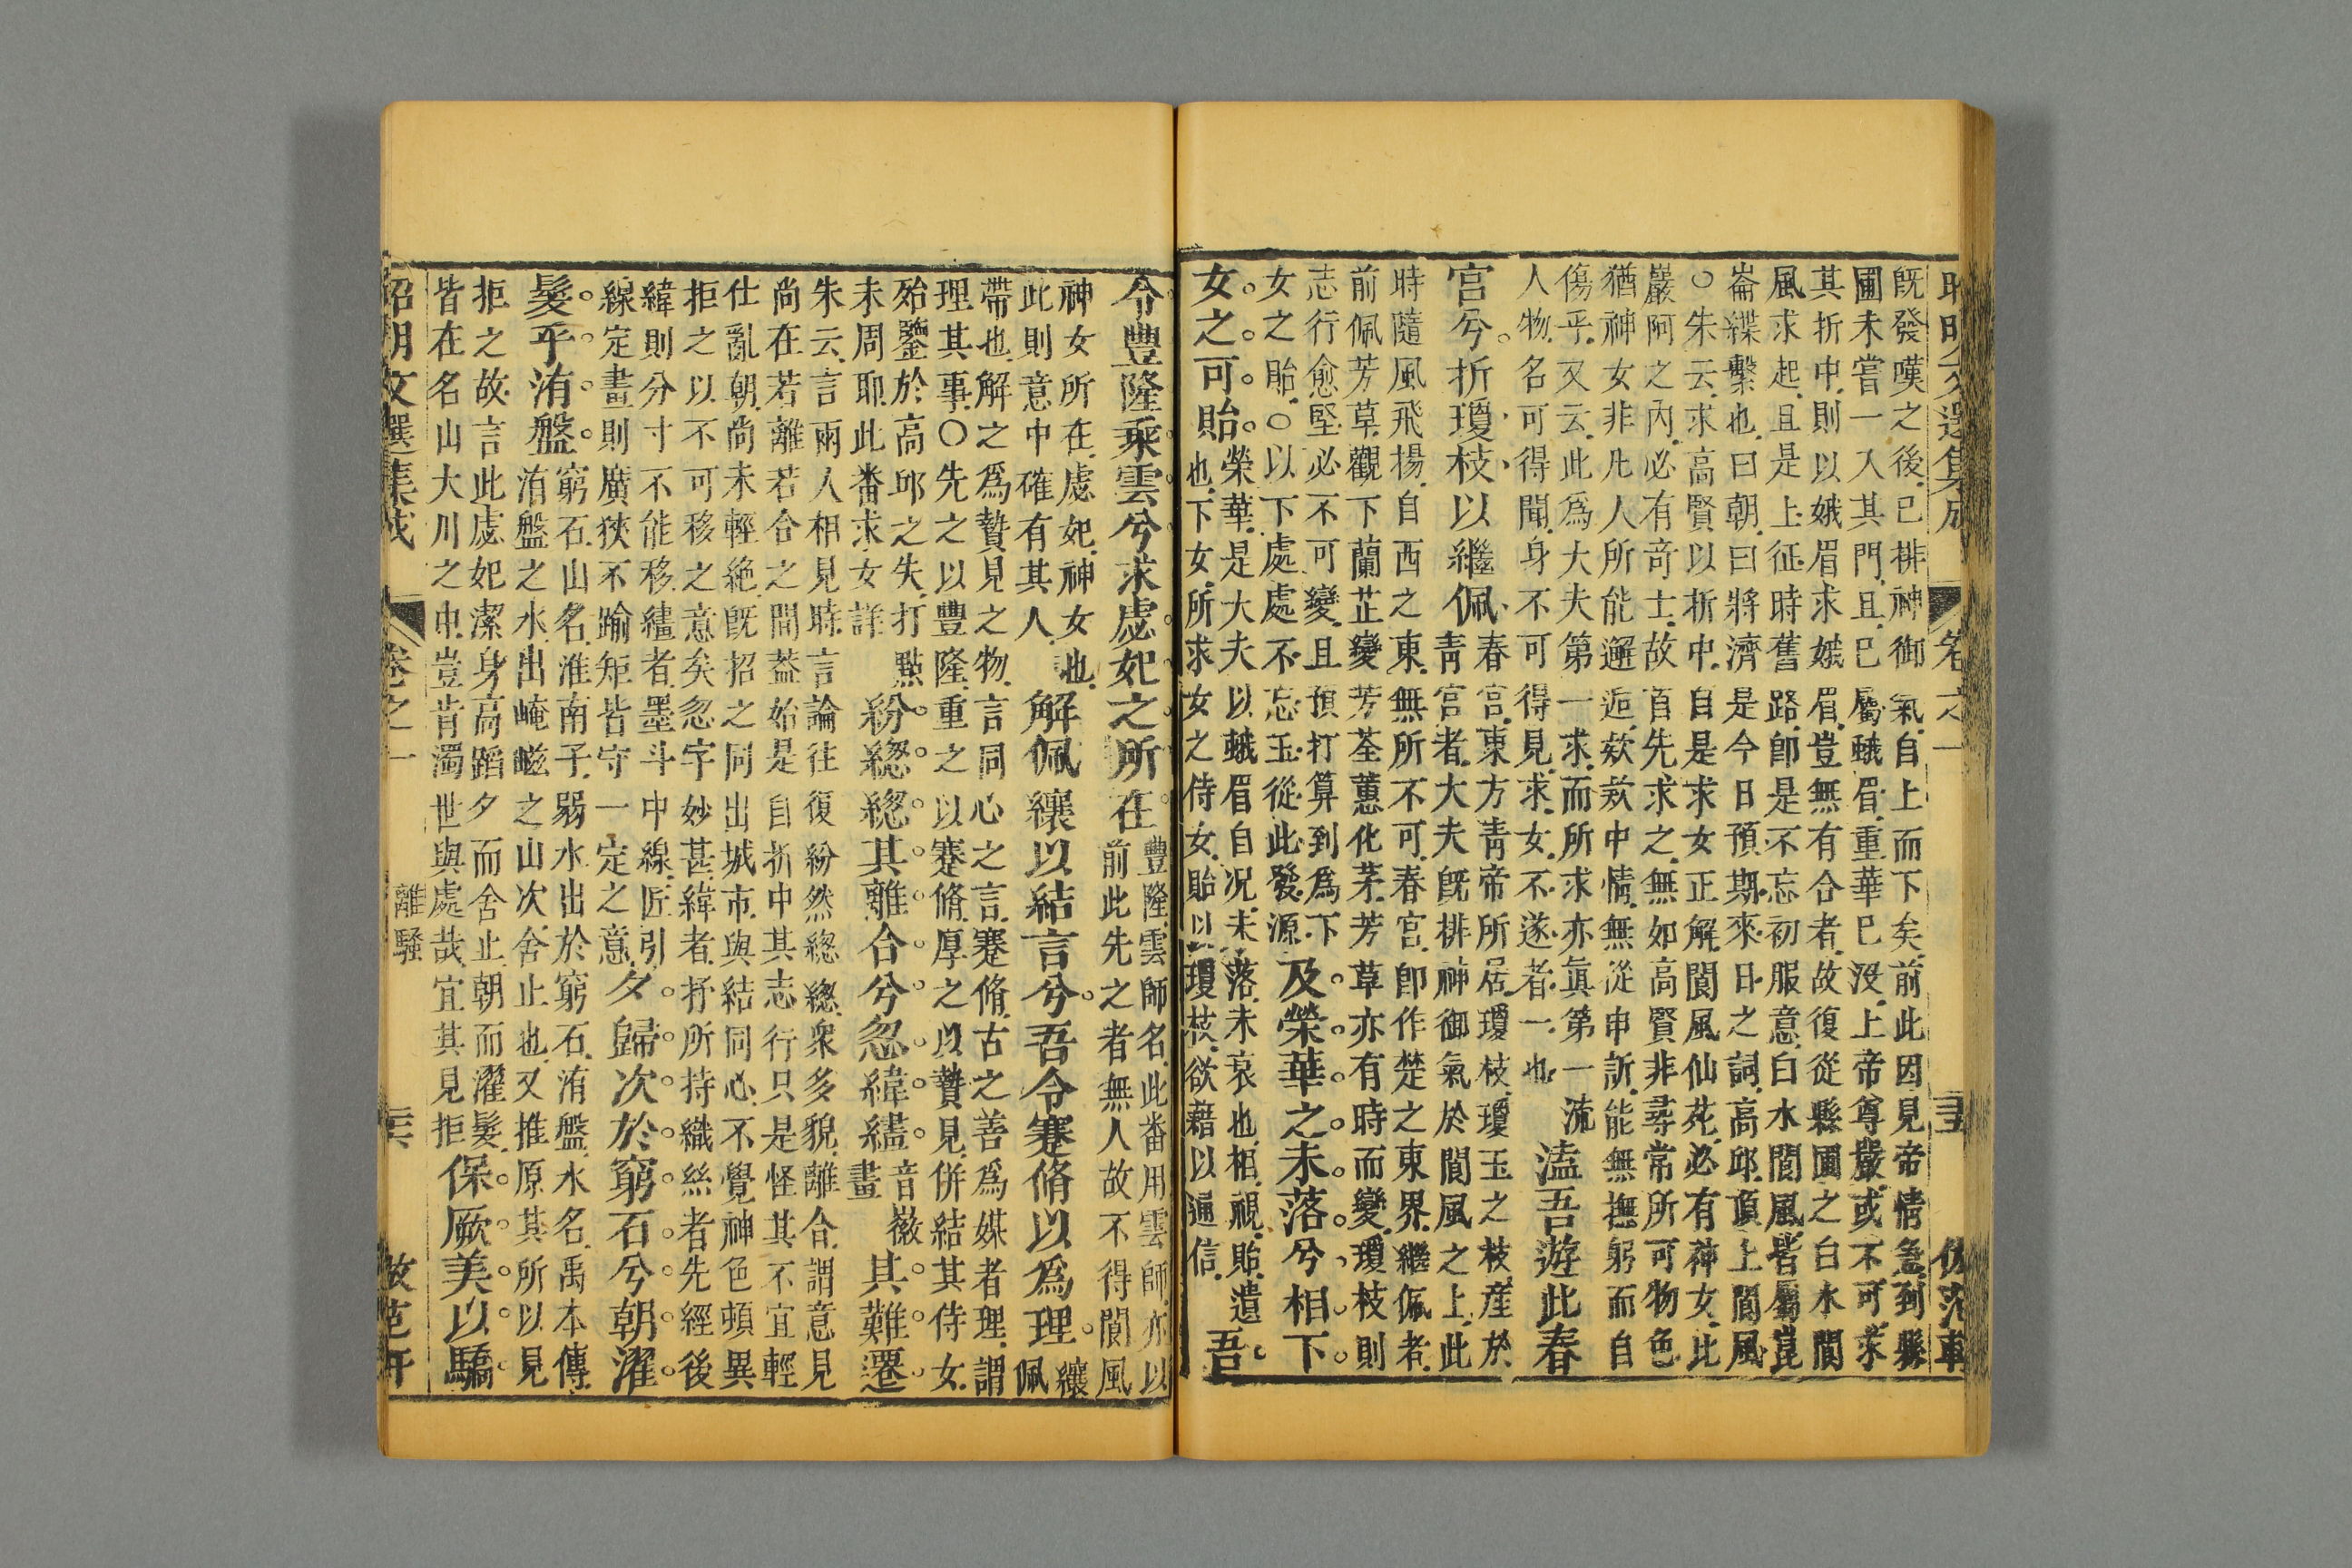 昭明文選集成 卷之一
既發嘆之後已排神御氣自上而下矣前此因見帝情急到縣
圃未嘗一入其門且已屬蛾眉重華已没上帝尊嚴或不可求
其折中則以娥眉求娥眉豈無有合者故復從縣圃之白水閬
風求起且是上征時舊路卽是不忘初服意白水閬風皆屬崑
崙緤繫也曰朝曰將濟是今日預期來日之詞高邱頂上閬風
○朱云求高賢以折中自是求女正解閬風仙苑必有神女比
巖阿之內必有奇士故首先求之無如高賢非尋常所可物色
猶神女非凡人所能邂逅欸欸中情無從申訴能無撫躬而自
傷乎又云此爲大夫第一求而所求亦眞第一流 溘吾遊此春
人物名可得聞身不可得見求女不遂者一也
宮兮折瓊枝以繼佩 春宮東方靑帝所居瓊枝瓊玉之枝產於
靑宮者大夫旣排神御氣於閬風之上此
時隨風飛揚自西之東無所不可春宮卽作楚之東界繼佩者
前佩芳草觀下蘭芷變芳荃蕙化茅芳草亦有時而變瓊枝則
志行愈堅必不可變且預打算到爲下
女之貽○以下處處不忘玉從此發源 及榮華之未落兮相下
女之可貽 榮華是大夫以蛾眉自况未落未衰也相視貽遺
也下女所求女之侍女貽以瓊枝欲藉以通信 吾
令豐隆乘雲兮求虙妃之所在 豐隆雲師名此番用雲師亦以
前此先之者無人故不得閬風
神女所在虙妃神女也
此則意中確有其人 解佩纕以結言兮吾令蹇脩以爲理 纕
佩
帶也解之爲贄見之物言同心之言蹇脩古之善爲媒者理謂
理其事○先之以豐隆重之以蹇脩厚之以贄見併結其侍女
殆鑒於高邱之失打點
未周耶此番求女詳 紛總總其離合兮忽緯繣 音徽
畫 其難遷
朱云言兩人相見時言論往復紛然總總衆多貌離合謂意見
尚在若離若合之間葢始是自折中其志行只是怪其不宜輕
仕亂朝尙未輕絶旣招之同出城市與結同心不覺神色頓異
拒之以不可移之意矣忽字妙甚緯者抒所持織絲者先經後
緯則分寸不能移繣者墨斗中線匠引
線定畫則廣狹不踰矩皆守一定之意 夕歸次於窮石兮朝濯
髮乎洧盤 窮石山名淮南子弱水出於窮石洧盤水名禹本傳
洧盤之水出崦嵫之山次舍止也又推原其所以見
拒之故言此虙妃潔身高蹈夕而舍止朝而濯髮
皆在名山大川之中豈肯濁世與處哉宜其見拒 保厥美以驕
昭明文選集成 卷之一 離騷